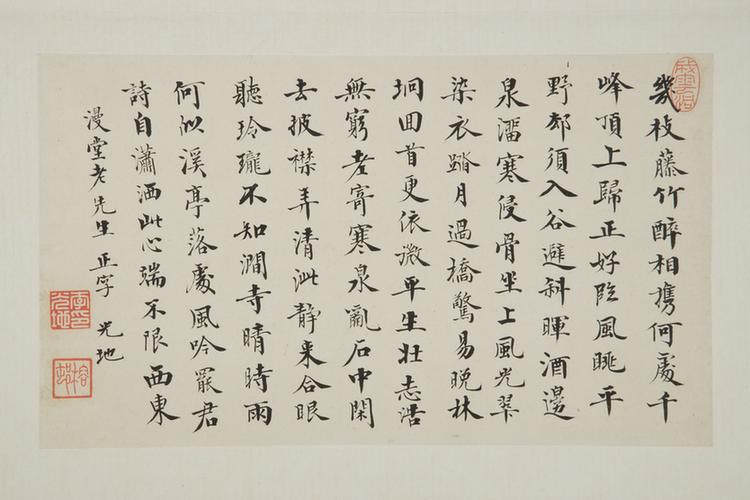 幾枝藤竹醉相攜何處千
峰頂上歸正好臨風眺平
野却須入谷避斜暉酒邊
泉溜寒侵骨坐上風光翠
染衣踏月過橋驚易晚林
坰回首更依微平生壯志浩
無窮老寄寒泉亂石中閑
去披襟弄清泚靜來合眼
聽玲瓏不知澗寺晴時雨
何似溪亭落處風吟罷君
詩自瀟洒此心端不限西東
漫堂老先生正字 光地
李印光地
榕村